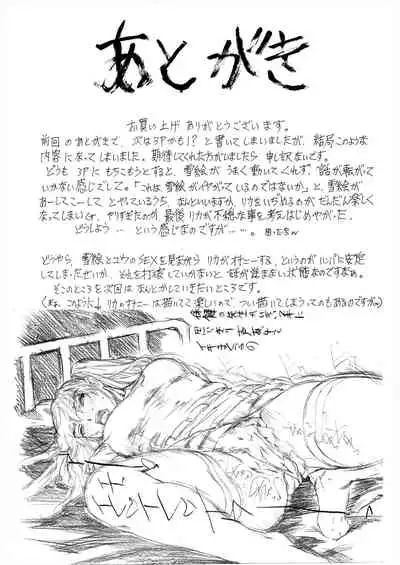 あとがき
お買い上げ ありがとうございます。
前回のあとがきで、次は3Pかも!? と書いてしまいましたが、結局このような
内容になってしまいました。期待してくれた方がいましたら 申し訳ないです。
どうも 3Pに もちこもうとすると、雪絵が うまく動いてくれず 話が転がって
いかない感じでして。「これは雪絵がイヤがっているのではないか」と、雪絵が
あーしてこーして とやっているうち、なんといいますか、リカをいぢめるのが だんだん楽しく
なってしまい
最後 リカが不穏な事を考えはじめやがった。
どうしよう… という感じなのですが…。
どうやら、雪絵とユウのSEXを見ながら リカがオナニーする、というのが
に安定
してしまったせいか、それを打破していかないと 話が進まない状態なのですなぁ。
そこのところを次回は なんとかしていきたいところです。
(まぁ、このように↓ リカのオナニーは描いてて楽しいので、つい描いてしまうってのもあるのですが